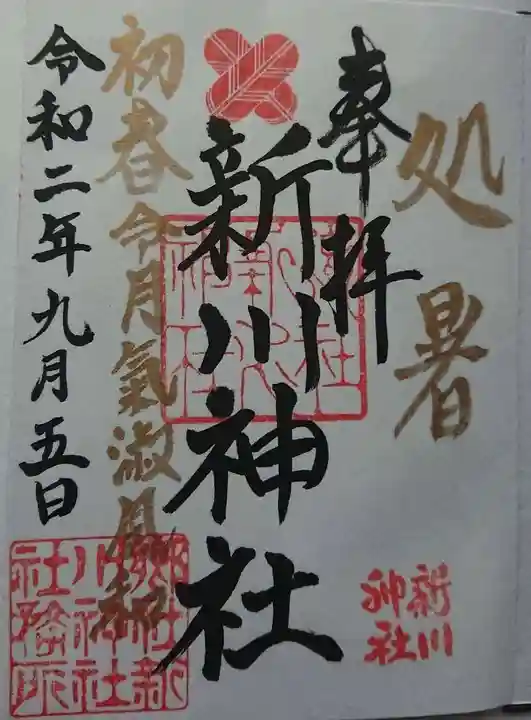 処暑
奉拝
新川神社
初春令月氣淑風和
令和二年九月五日
新川
神社
郷社新
川神社
社務所